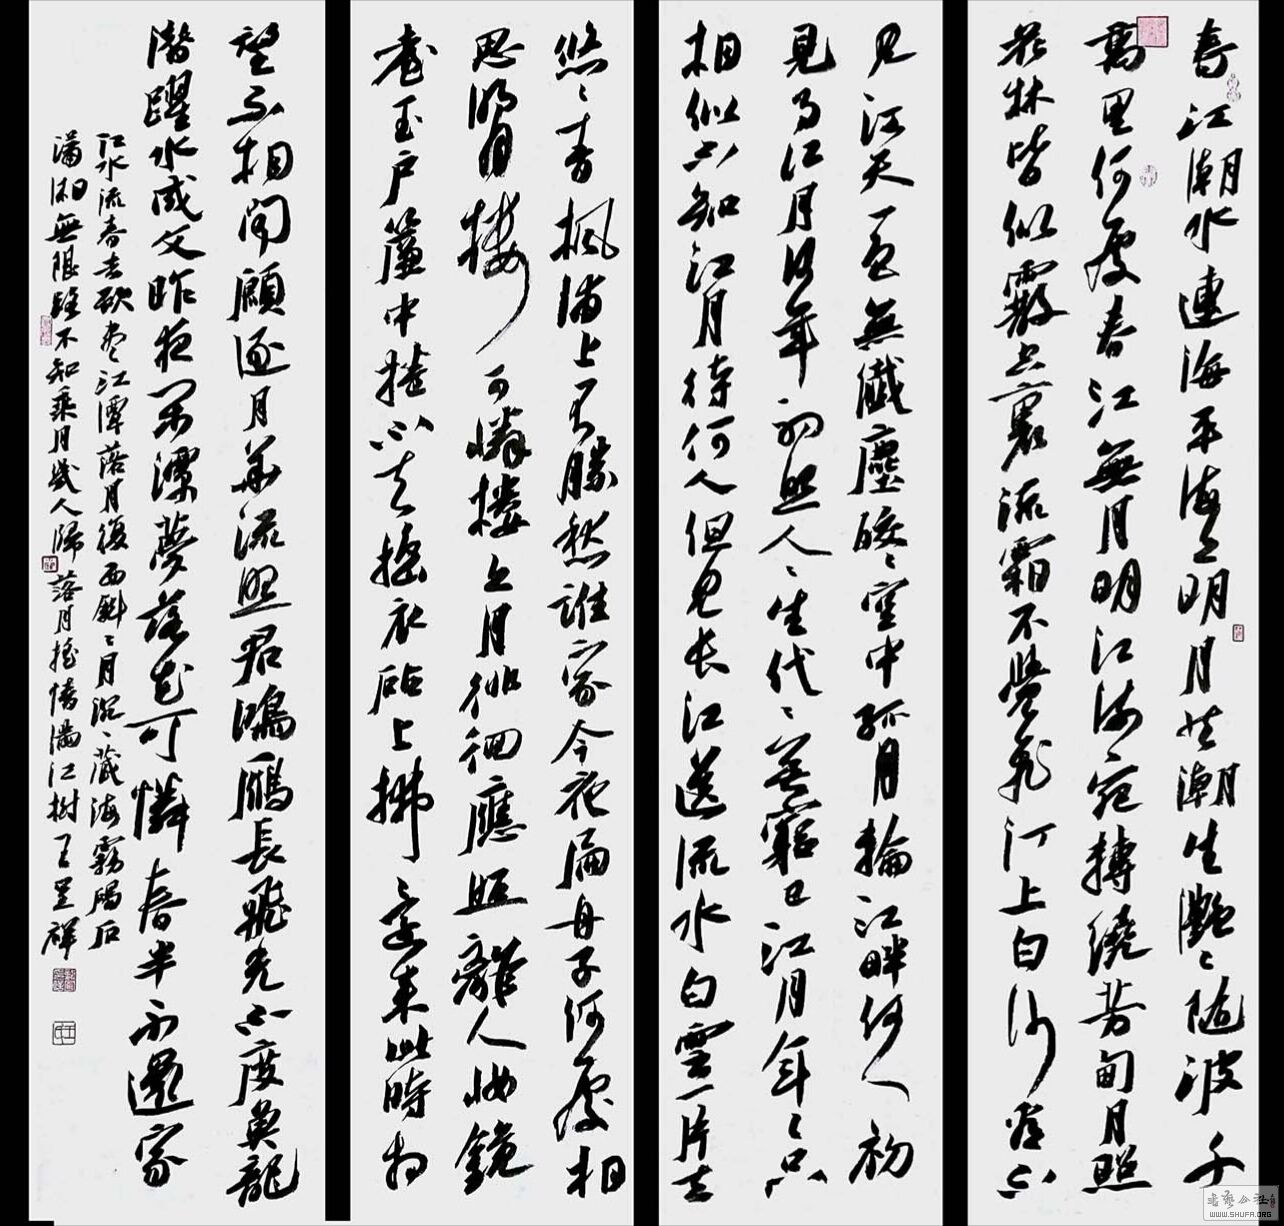 春江潮水連海平海上明月共潮生灩〻随波千
萬里何處春江無月明江流宛轉繞芳甸月照
花林皆似霰空裏流霜不覺飛汀上白沙看不
見江天一色無纖塵皎〻空中孤月輪江畔何人初
見月江月何年初照人〻生代〻無窮已江月年〻只
相似不知江月待何人但見長江送流水白雲一片去
悠〻青枫浦上不勝愁誰家今夜扁舟子何處相
思明月樓可憐樓上月徘徊應照離人妝鏡
臺玉户簾中捲不去搗衣砧上拂還来此時相
望不相聞願逐月華流照君鴻雁長飛光不度魚龍
潛躍水成文昨夜閑潭夢落花可憐春半不還家
江水流春去欲尽江潭落月復西斜〻月沉〻藏海霧碣石
瀟湘無限路不知乘月幾人歸落月摇情滿江樹 王呈祥
WWW.SHUFA.ORG